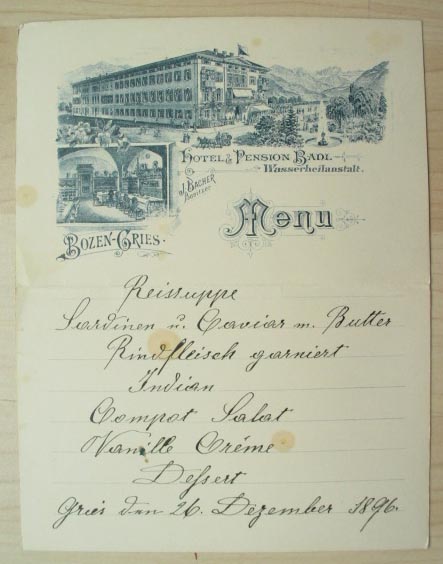 Hotel & Pension Badl
Wasserheilanstalt.
J. Bacher
Bozen-Gries.
Menu
Reissuppe
Sardinen u. Caviar m. Butter
Rindfleisch garniert
Indian
Compot Salat
Vanille Créme
Dessert
Gries den 26. Dezember 1896.